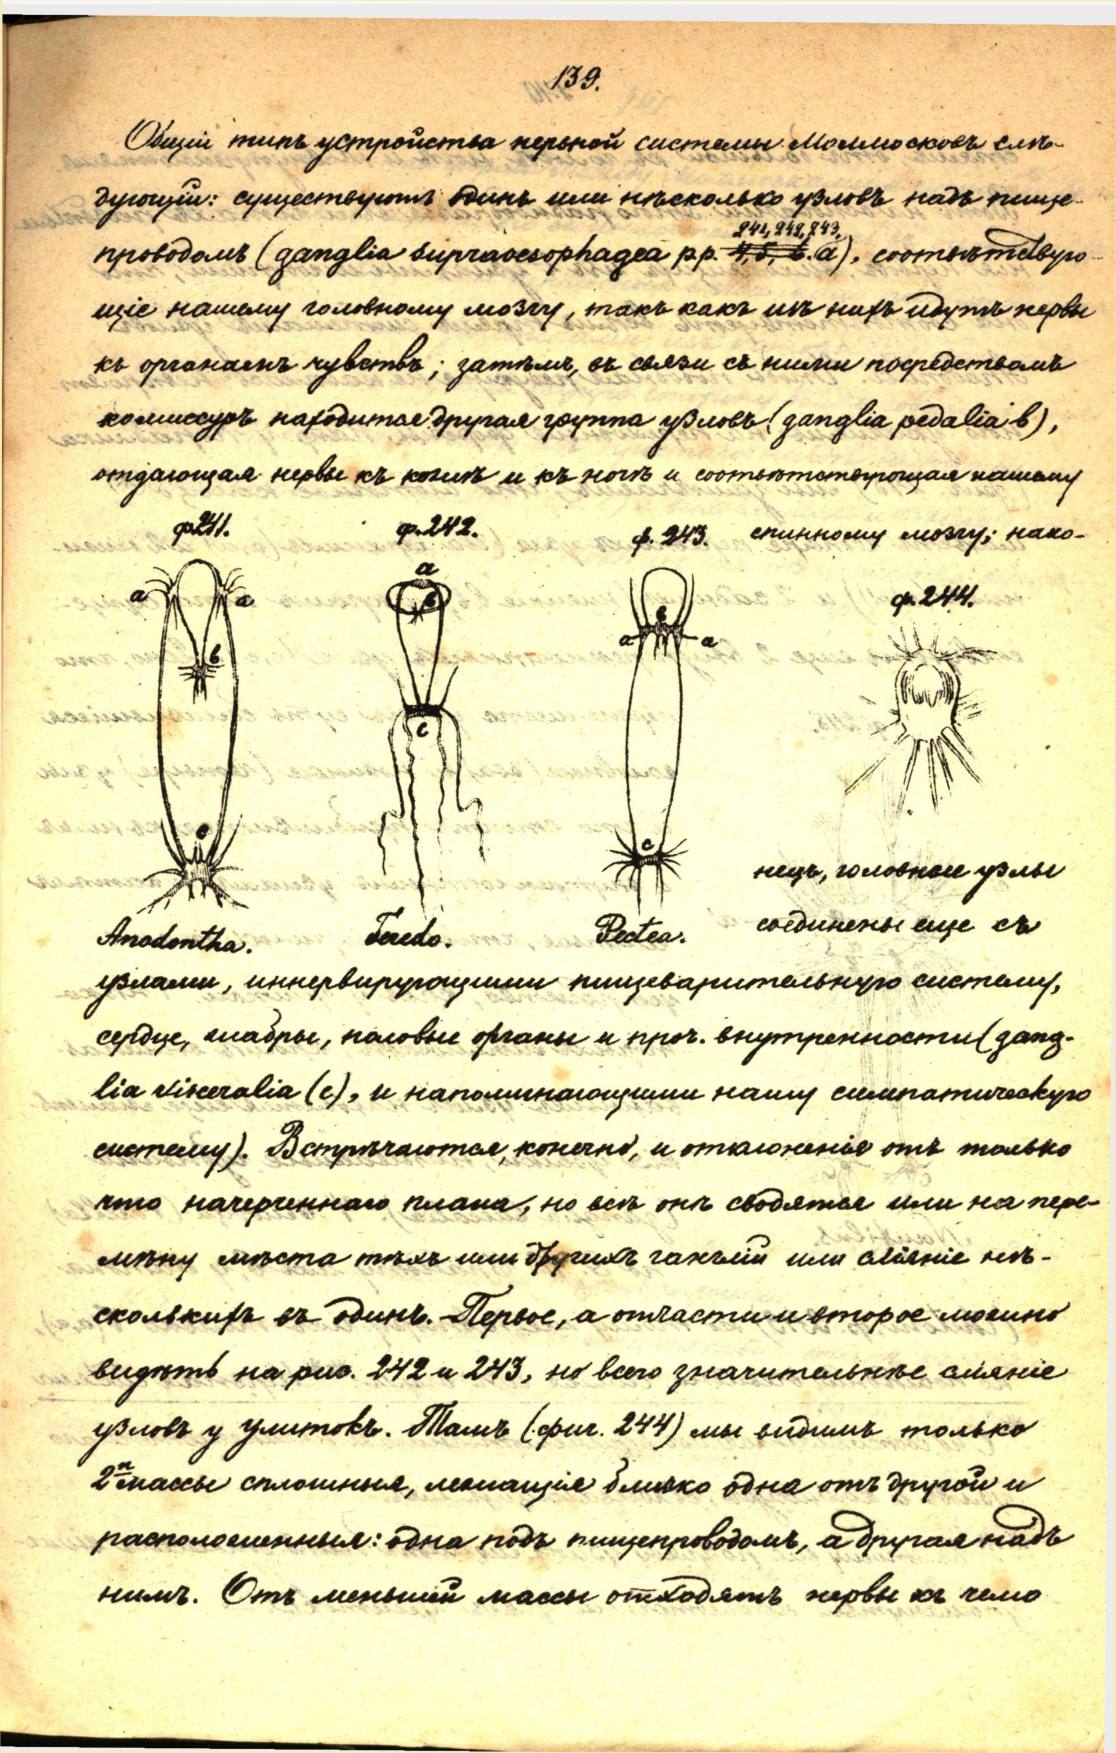 139.
Общій типъ устройства нервной системы Моллюсковъ слѣ-
дующій: существуютъ одинъ или нѣсколько узловъ надъ пище-
241, 242, 243,
проводомъ (ganglia supraoesophagea рр. 4, 5, 6. a), соотвѣтствую-
щіе нашему головному мозгу, такъ какъ изъ нихъ идутъ нервы
къ органамъ чувствъ; затѣмъ, въ связи съ ними посредствомъ
комиссуръ находится другая группа узловъ (ganglia pedalia b),
отдающая нервы къ кожѣ и къ ногѣ и соотвѣтствующая нашему
ф. 241. ф. 242. ф. 243. спинному мозгу; нако-
ф. 244.
a a b c
a b c
a b a c
нецъ, головные узлы
соединены еще съ
Anodontha. Teredo. Pectea.
узлами, иннервирующими пищеварительную систему,
сердце, жабры, половые органы и проч. внутренности (gang-
lia visceralia (c), и напоминающими нашу симпатическую
систему). Встрѣчаются, конечно, и отклоненія отъ только
что начерченнаго плана, но всѣ онѣ сводятся или на пере-
мѣну мѣста тѣхъ или другихъ ганглій или сліяніе нѣ-
сколькихъ въ одинъ. Первое, а отчасти и второе можно
видѣть на рис. 242 и 243, но всего значительнѣе сліяніе
узловъ у улитокъ. Тамъ (фиг. 244) мы видимъ только
2 массы сплошныя, лежащія близко одна отъ другой и
расположенныя: одна подъ пищепроводомъ, а другая надъ
нимъ. Отъ меньшей массы отходятъ нервы къ чело